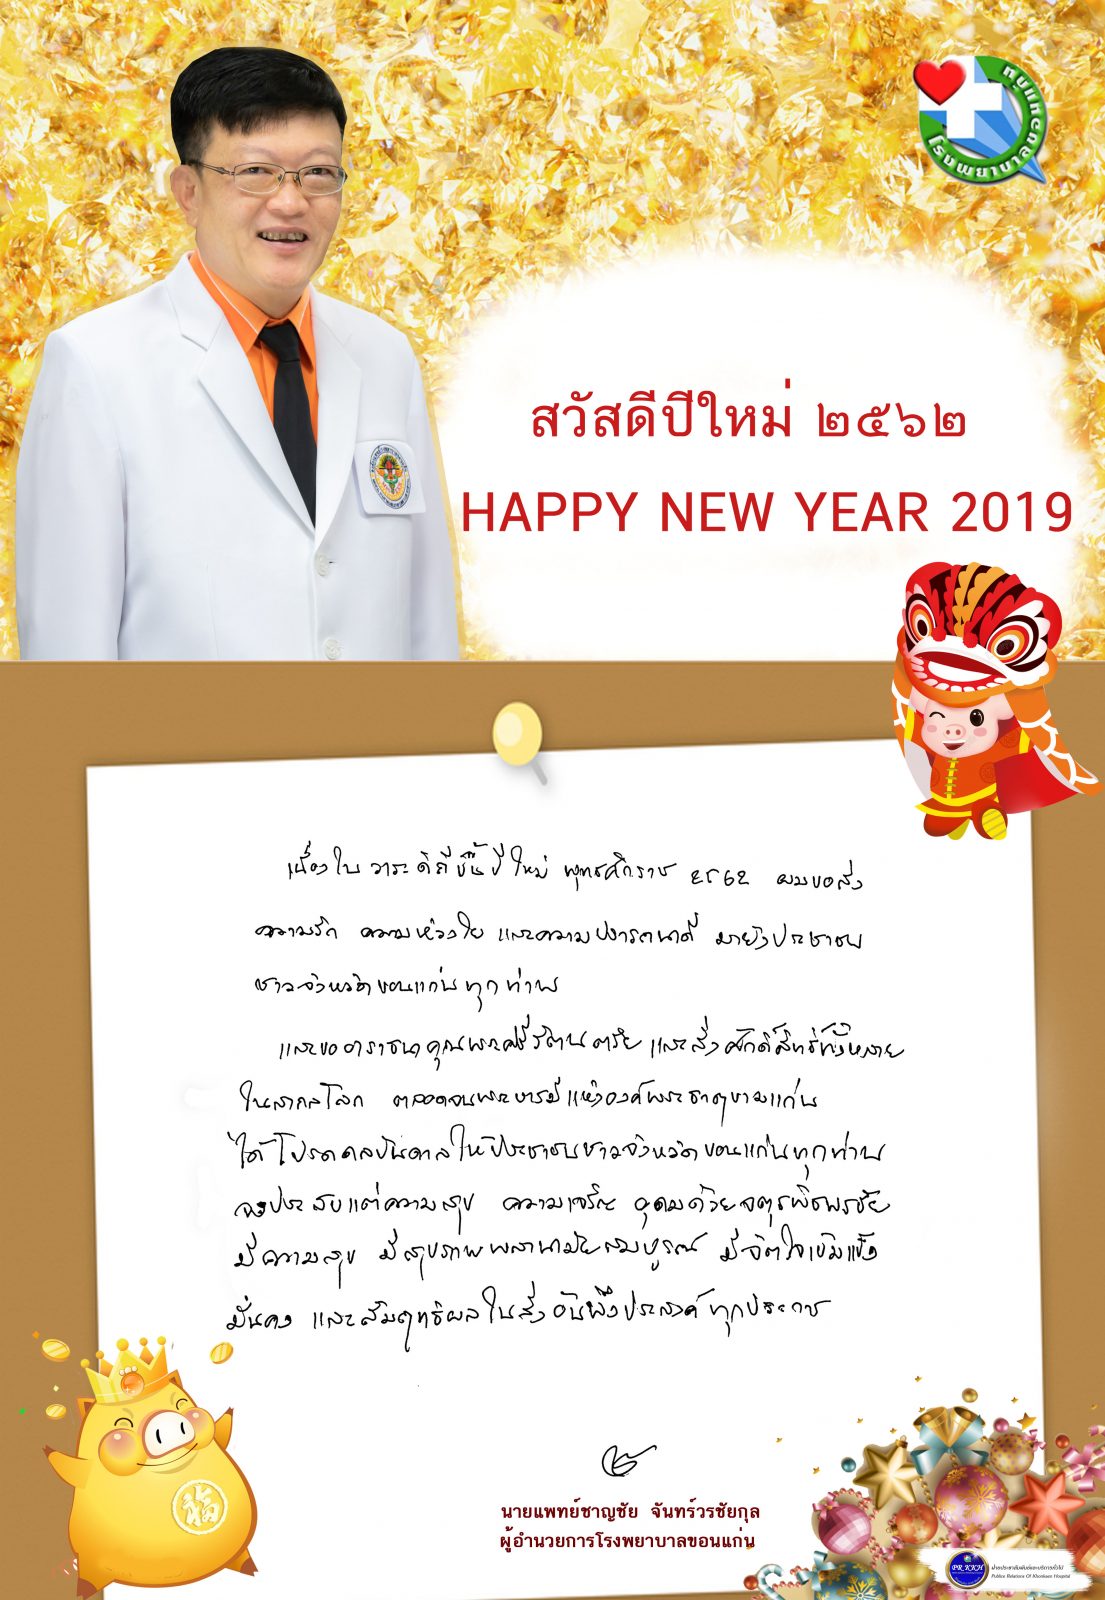 โรงพยาบาลขอนแก่น
สวัสดีปีใหม่ ๒๕๖๒
HAPPY NEW YEAR 2019
เนื่องในวาระดิถีขึ้นปีใหม่ พุทธศักราช 2562 ผมขอส่ง
ความรัก ความห่วงใย และความปรารถนาดี มายังประชาชน
ชาวจังหวัดขอนแก่นทุกท่าน
และขออาราธนาคุณพระศรีรัตนตรัย และสิ่งศักดิ์สิทธิ์ทั้งหลาย
ในสากลโลก ตลอดจนพระบารมีแห่งองค์พระธาตุขามแก่น
ได้โปรดดลบันดาลให้ประชาชนชาวจังหวัดขอนแก่นทุกท่าน
จงประสบแต่ความสุข ความเจริญ อุดมด้วยจตุรพิธพรชัย
มีความสุข มีสุขภาพพลานามัยสมบูรณ์ มีจิตใจเข้มแข็ง
มั่นคง และสัมฤทธิผลในสิ่งอันพึงประสงค์ทุกประการ
福
นายแพทย์ชาญชัย จันทร์วรชัยกุล
ผู้อำนวยการโรงพยาบาลขอนแก่น
PR KKH
Publice Relations Of Khonkaen Hospital